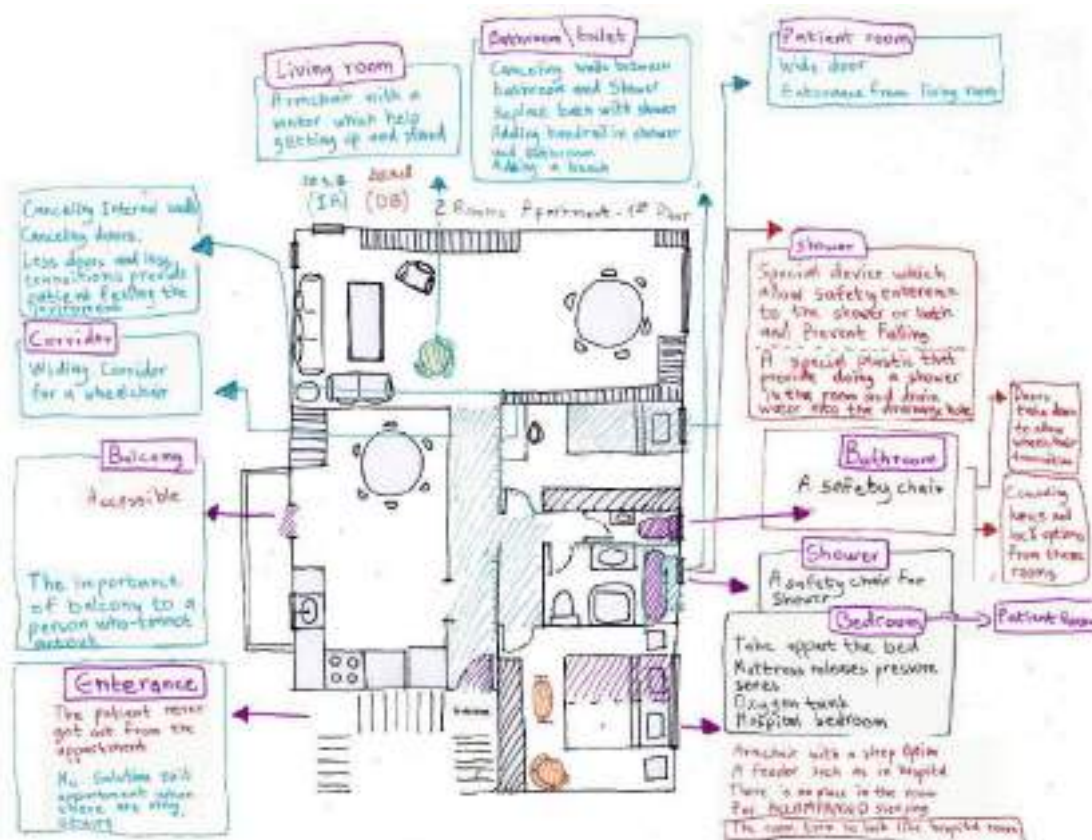 Living room
Armchair with a
motor which help
getting up and stand
Bathroom\toilet
Canceling walls between
bathroom and Shower
Replace bath with shower
Adding handrail in shower
and bathroom
Adding a bench
Patient room
Wide door
Enterance from living room
(IA) (DB)
2 Rooms Apartment - 1st Floor
Canceling Internal walls
Canceling doors.
Less doors and less
transitions provide
patient feeling the
Corridor
Widing Corridor
for a wheelchair
Balcony
Accessible
The importance
of balcony to a
person who cannot
Enterance
The patient never
got out from the
appartment
No solution
appartment when
there are many
stairs
shower
Special device which
Allow safety enterence
to the shower or bath
and Prevent Falling
A special plastic that
provide doing a shower
in the room and drain
water into the drainage hole
Doors
to allow
wheelchair
transition
Bathroom
A safety chair
Canceling
keys and
lock options
From these
rooms
Shower
A safety chair For
Shower
Bedroom
Patient Room
Take appart the bed
Mattress releases pressure
Oxygen tank
Hospital bedroom
Armchair with a sleep Option
A feeder such as in hospital
There is no place in the room
For sleeping
The room turn to look like hospital room